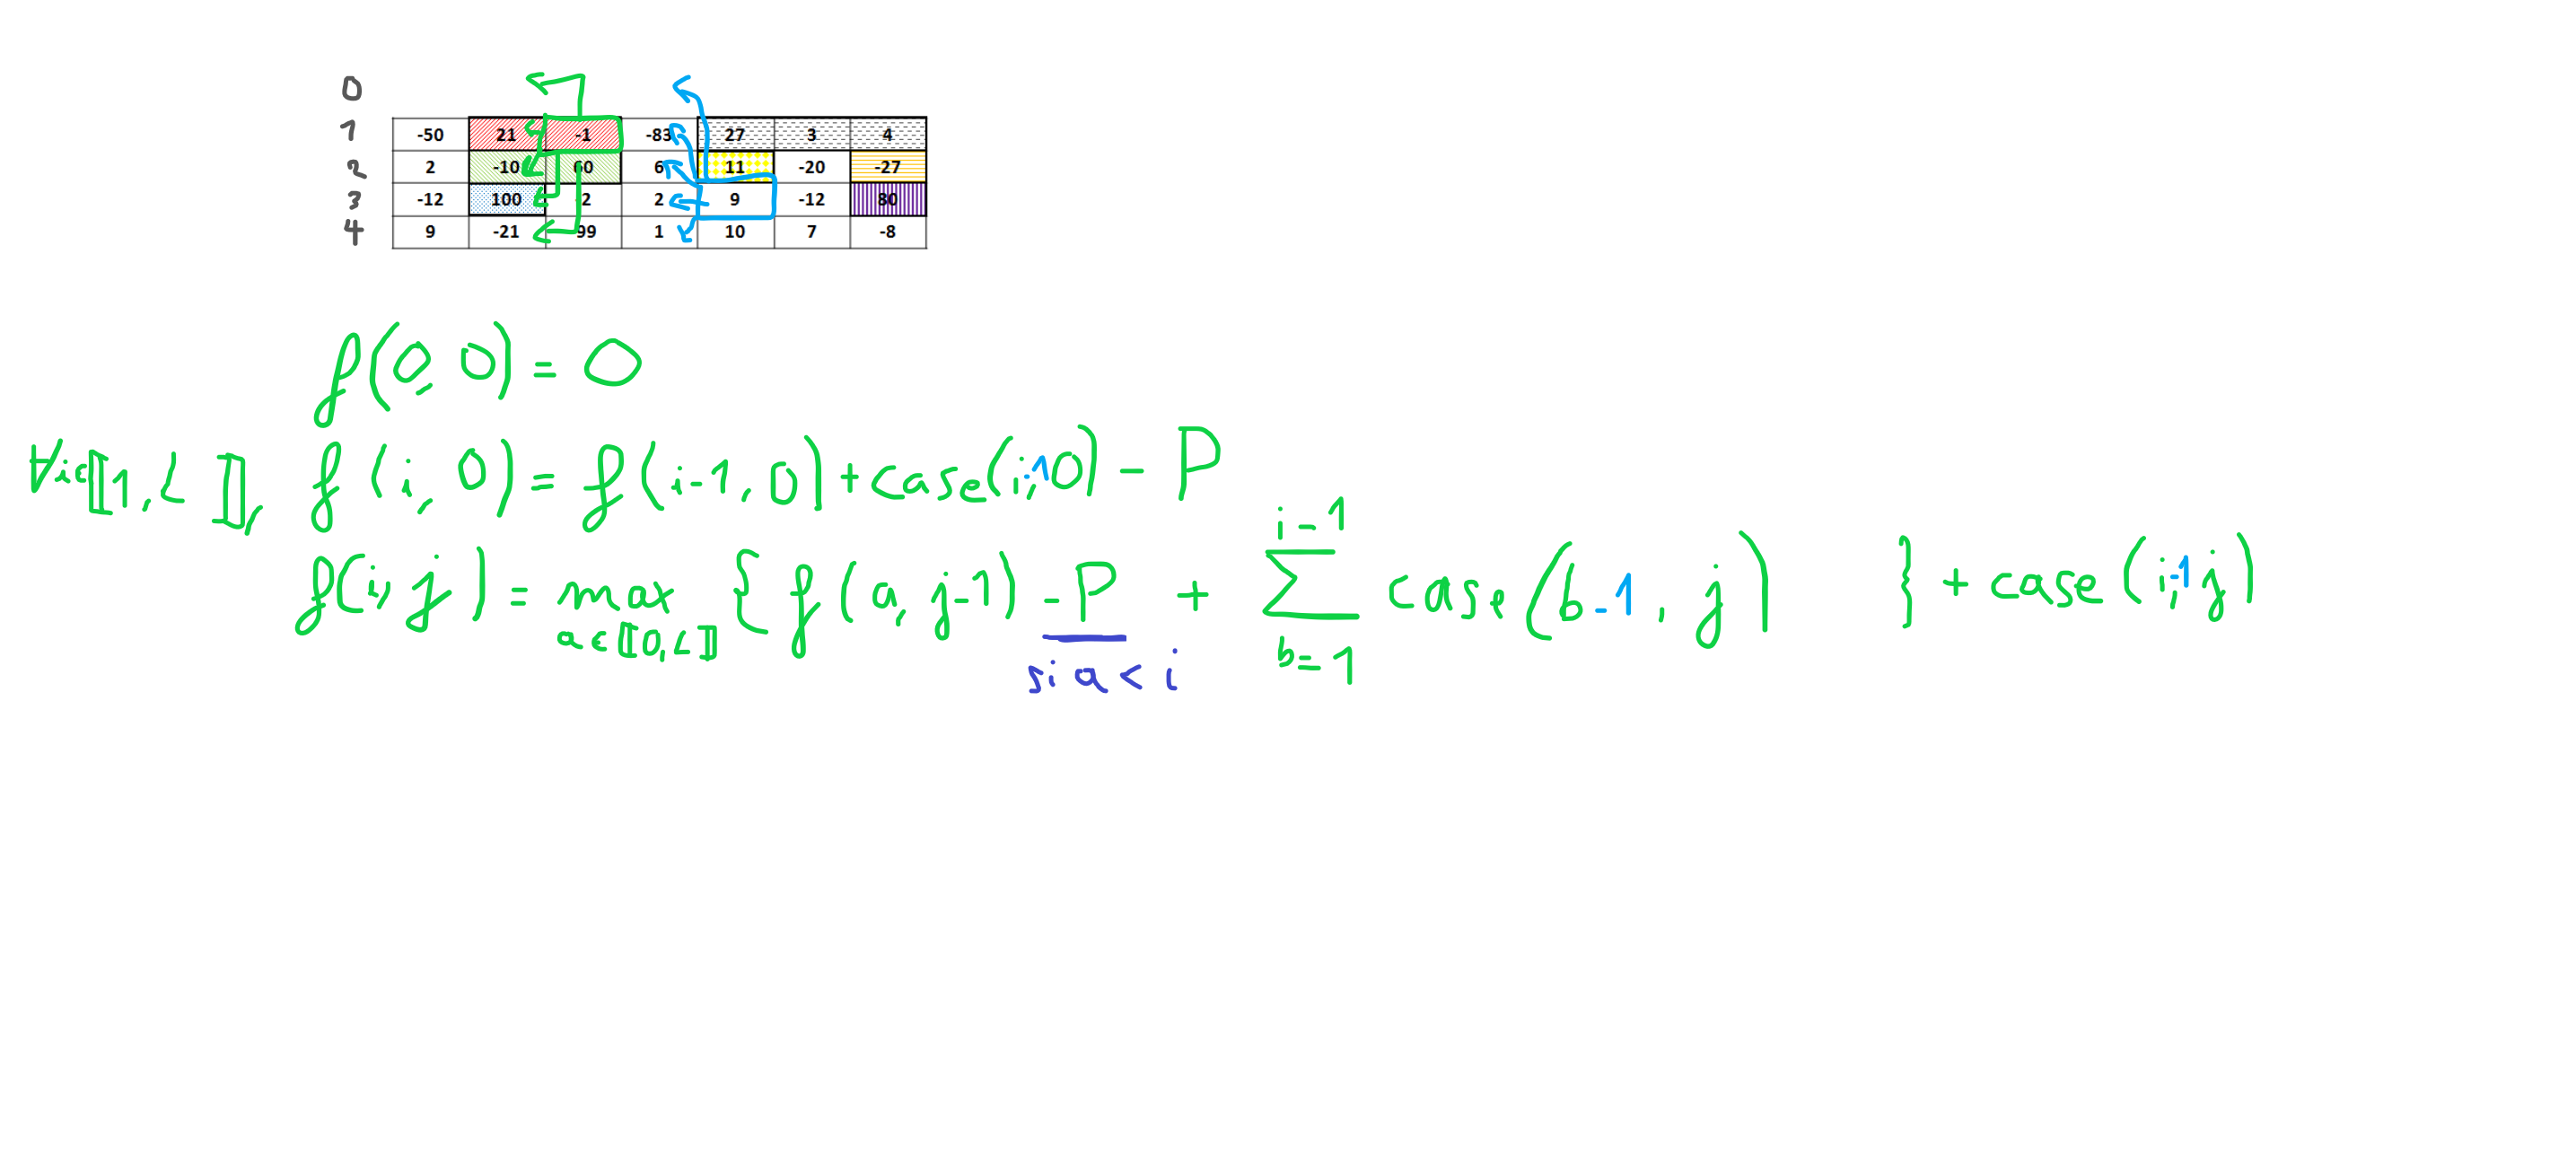 0
1 -50 21 -1 -83 27 3 4
2 2 -10 60 6 11 -20 -27
3 -12 100 2 2 9 -12 80
4 9 -21 99 1 10 7 -8
f(0, 0) = 0
∀i∈⟦1, L⟧, f(i, 0) = f(i-1, 0) + case(i-1, 0) - P
f(i, j) = max {f(a, j-1) - P + ∑ case(b-1, j) } + case(i-1, j)
a∈⟦0, L⟧ si a < i b=1 i-1